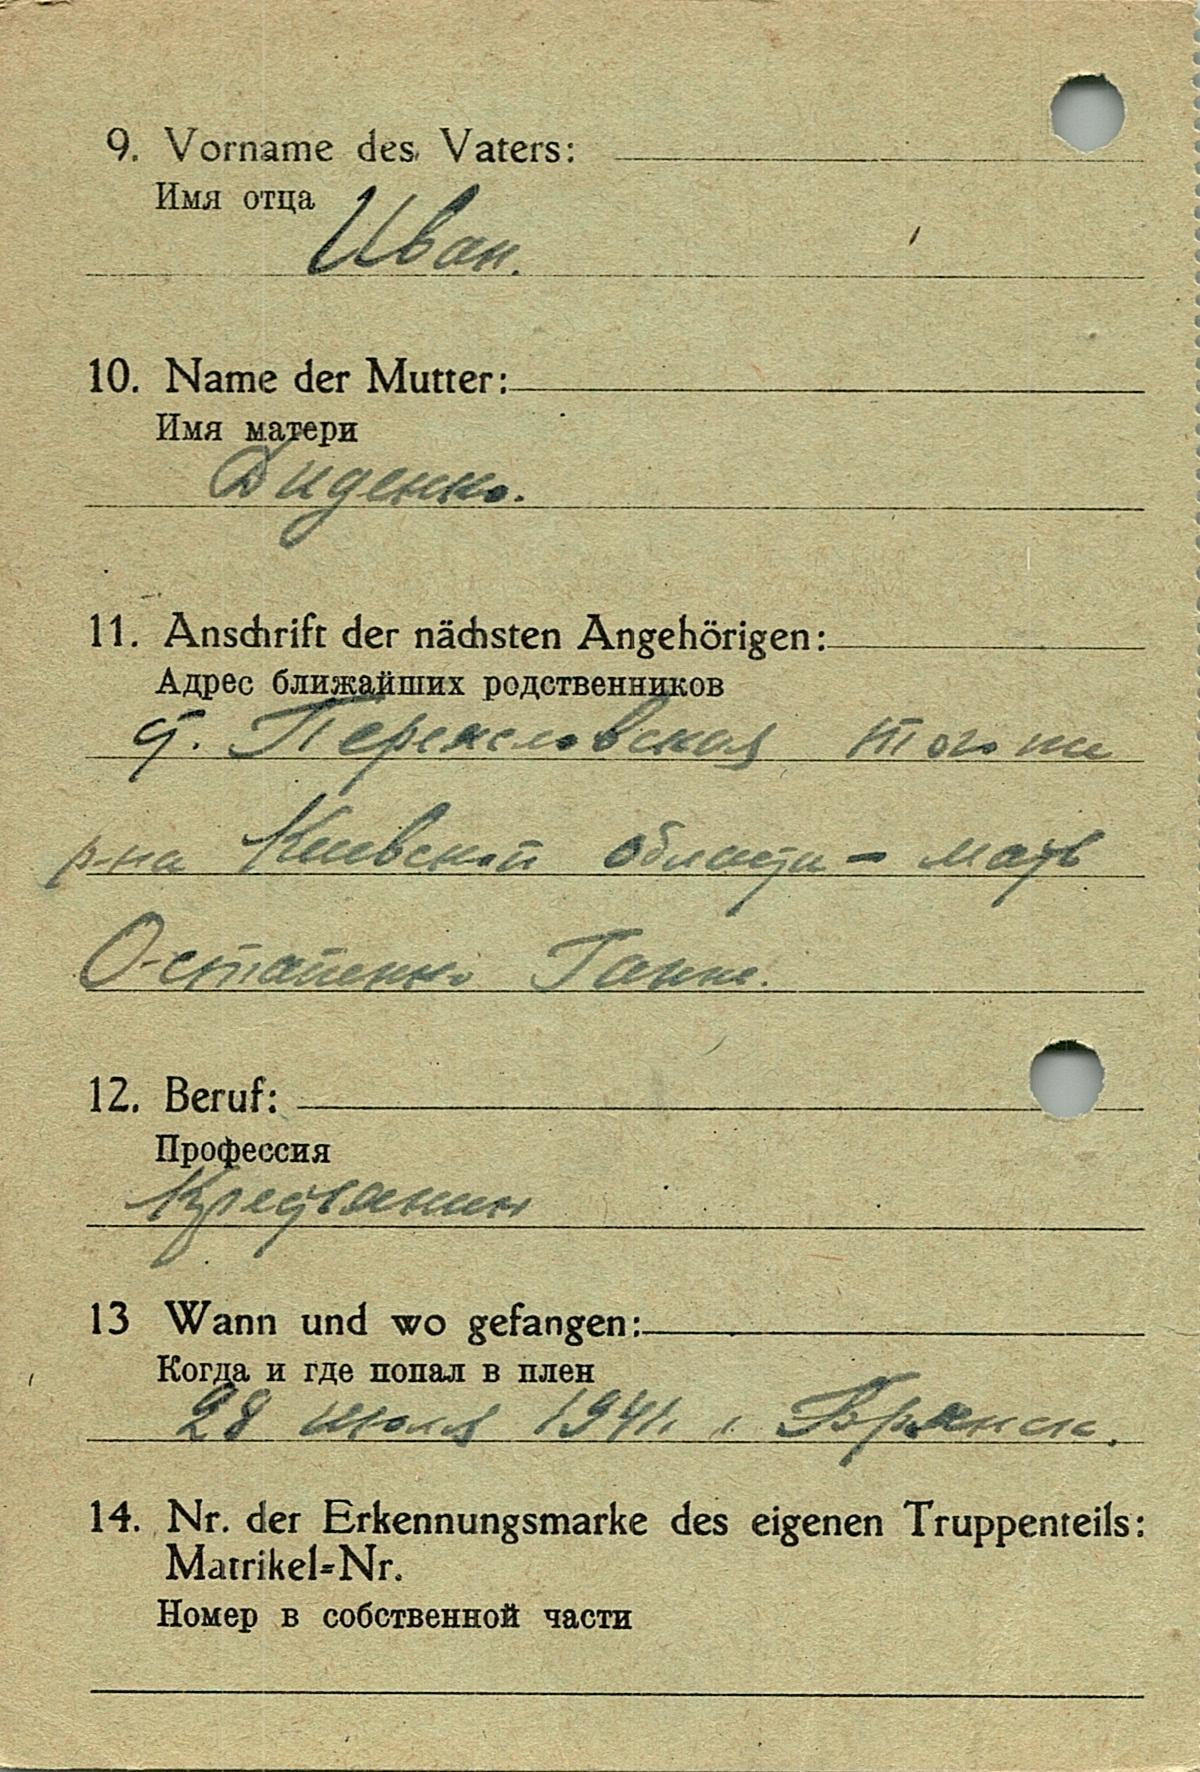 9. Vorname des Vaters:
Имя отца
Иван.
10. Name der Mutter:
Имя матери
Диденко.
11. Anschrift der nächsten Angehörigen:
Адрес ближайших родственников
д. Переясловская того же
р-на Киевской области - мать
Остапенко Ганна.
12. Beruf:
Профессия
Крестьянин
13 Wann und wo gefangen:
Когда и где попал в плен
28 июля 1941 г. Брянск.
14. Nr. der Erkennungsmarke des eigenen Truppenteils:
Matrikel=Nr.
Номер в собственной части